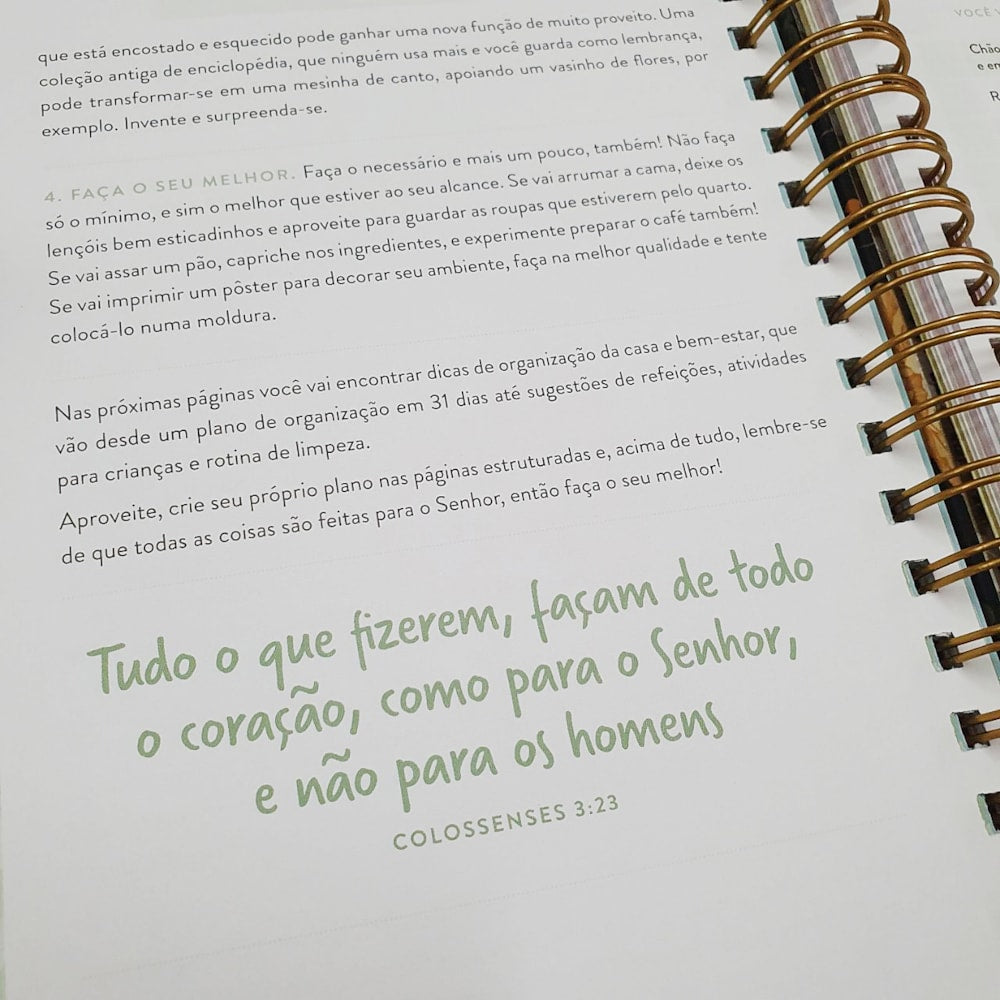 que está encostado e esquecido pode ganhar uma nova função de muito proveito. Uma
coleção antiga de enciclopédia, que ninguém usa mais e você guarda como lembrança,
pode transformar-se em uma mesinha de canto, apoiando um vasinho de flores, por
exemplo. Invente e surpreenda-se.
4. FAÇA O SEU MELHOR. Faça o necessário e mais um pouco, também! Não faça
só o mínimo, e sim o melhor que estiver ao seu alcance. Se vai arrumar a cama, deixe os
lençóis bem esticadinhos e aproveite para guardar as roupas que estiverem pelo quarto.
Se vai assar um pão, capriche nos ingredientes, e experimente preparar o café também!
Se vai imprimir um pôster para decorar seu ambiente, faça na melhor qualidade e tente
colocá-lo numa moldura.
Nas próximas páginas você vai encontrar dicas de organização da casa e bem-estar, que
vão desde um plano de organização em 31 dias até sugestões de refeições, atividades
para crianças e rotina de limpeza.
Aproveite, crie seu próprio plano nas páginas estruturadas e, acima de tudo, lembre-se
de que todas as coisas são feitas para o Senhor, então faça o seu melhor!
Tudo o que fizerem, façam de todo
o coração, como para o Senhor,
e não para os homens
COLOSSENSES 3:23
VOCÊ
Chão
e em